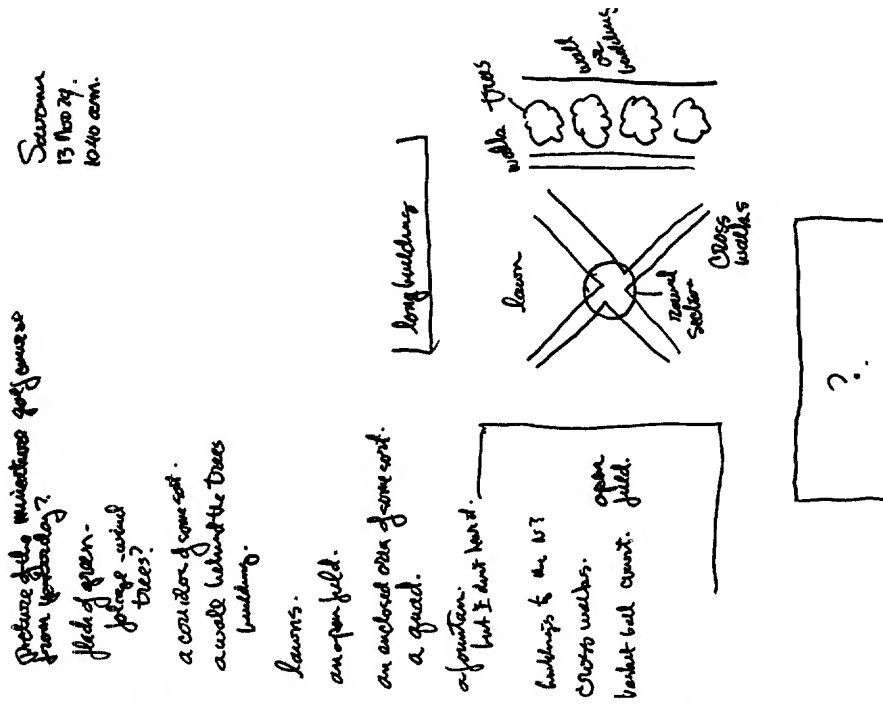 Savannah
13 Nov 79.
1040 am.
Picture of the miniature golf course
from yesterday?
flash of green -
foliage - wind
trees?
a corridor of some sort.
a wall behind the trees
building.
lawns.
an open field.
an enclosed area of some sort.
a quad.
a fountain.
but I don't hear it.
buildings to the W?
cross walks.
basket ball court.
open
field.
long building
lawn
walk
trees
wall
or
building
round
section
cross
walks
?